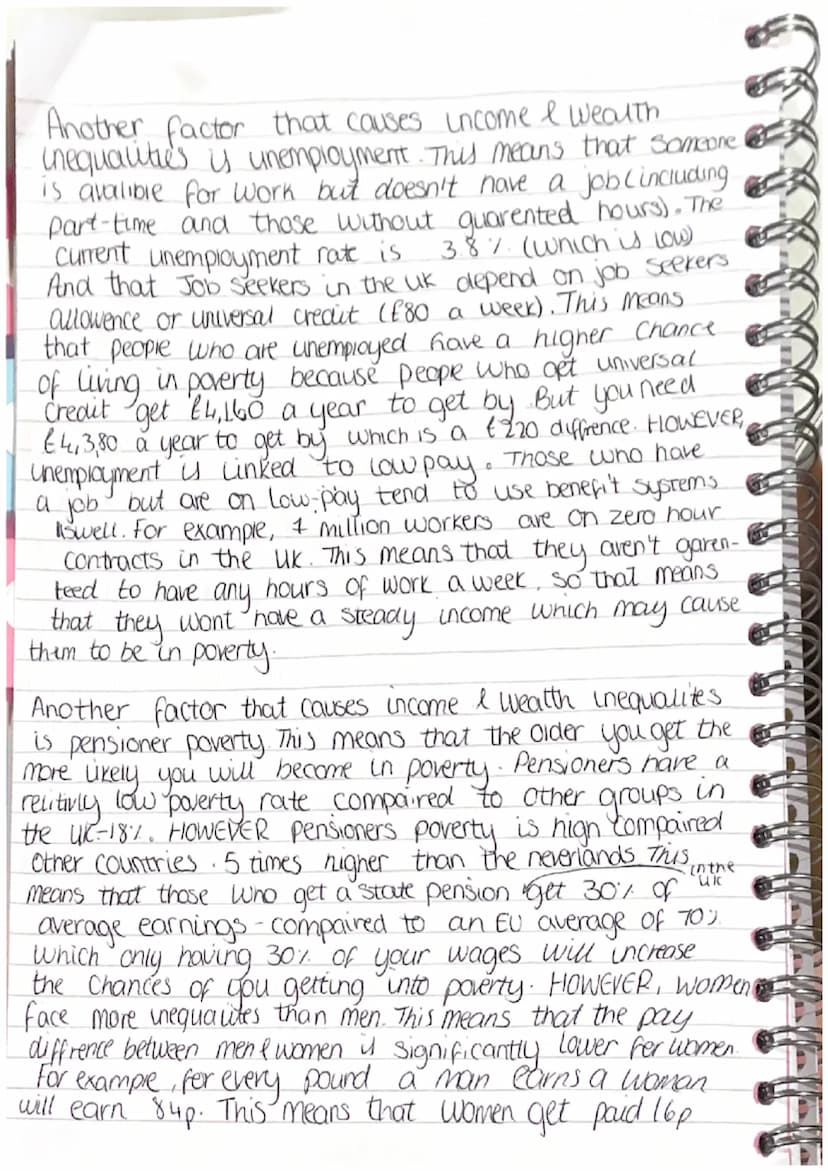 Another factor that causes income & wealth
inequalities is unemployment. This means that someone
is avalible for work but doesn't have a job (including
part-time and those without quarented hours). The
current unemployment rate is 3.8% (which is low)
And that Job Seekers in the UK depend on job seekers
allowence or universal credit (£80 a week). This means
that people who are unemployed have a higher chance
of living in poverty because people who get universal
credit get £4,160 a year to get by. But you need
£4,380 a year to get by which is a £220 diffrence. HOWEVER,
unemployment is linked to low pay. Those who have
a job but are on low-pay tend to use benefit systems
aswell. For example, 1 million workers are on zero hour
contracts in the UK. This means that they aren't garen-
teed to have any hours of work a week, so that means
that they wont have a steady income which may cause
them to be in poverty.
Another factor that causes income & wealth inequalites
is pensioner poverty. This means that the older you get the
more likely you will become in poverty. Pensioners have a
relitivly low poverty rate compaired to other groups in
the UK-18%. HOWEVER pensioners poverty is high compaired
other countries. 5 times higher than the neverlands This
means that those who get a state pension in the UK get 30% of
average earnings - compaired to an EU average of 70%
which only having 30% of your wages will increase
the chances of you getting into poverty. HOWEVER, women
face more inequalites than men. This means that the pay
diffrence between men & women is significantly lower for women.
For example, for every pound a man earns a woman
will earn 84p. This means that women get paid 16p